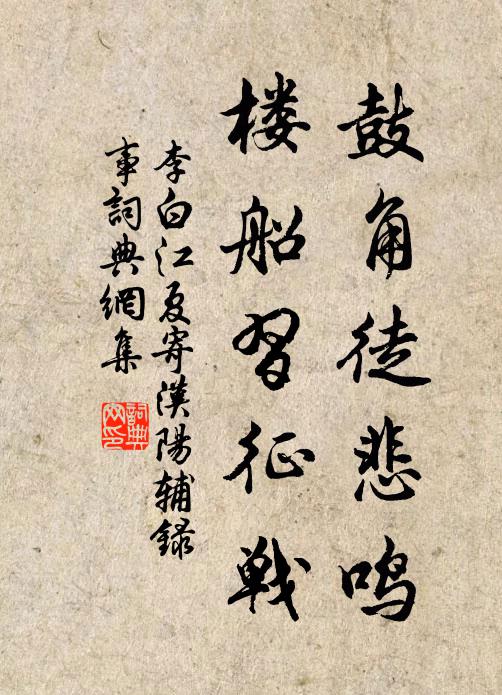 鼓角徒悲鸣
楼船習征戦
李白江夏寄漢陽辅録
事詞典網集
詞典
网印